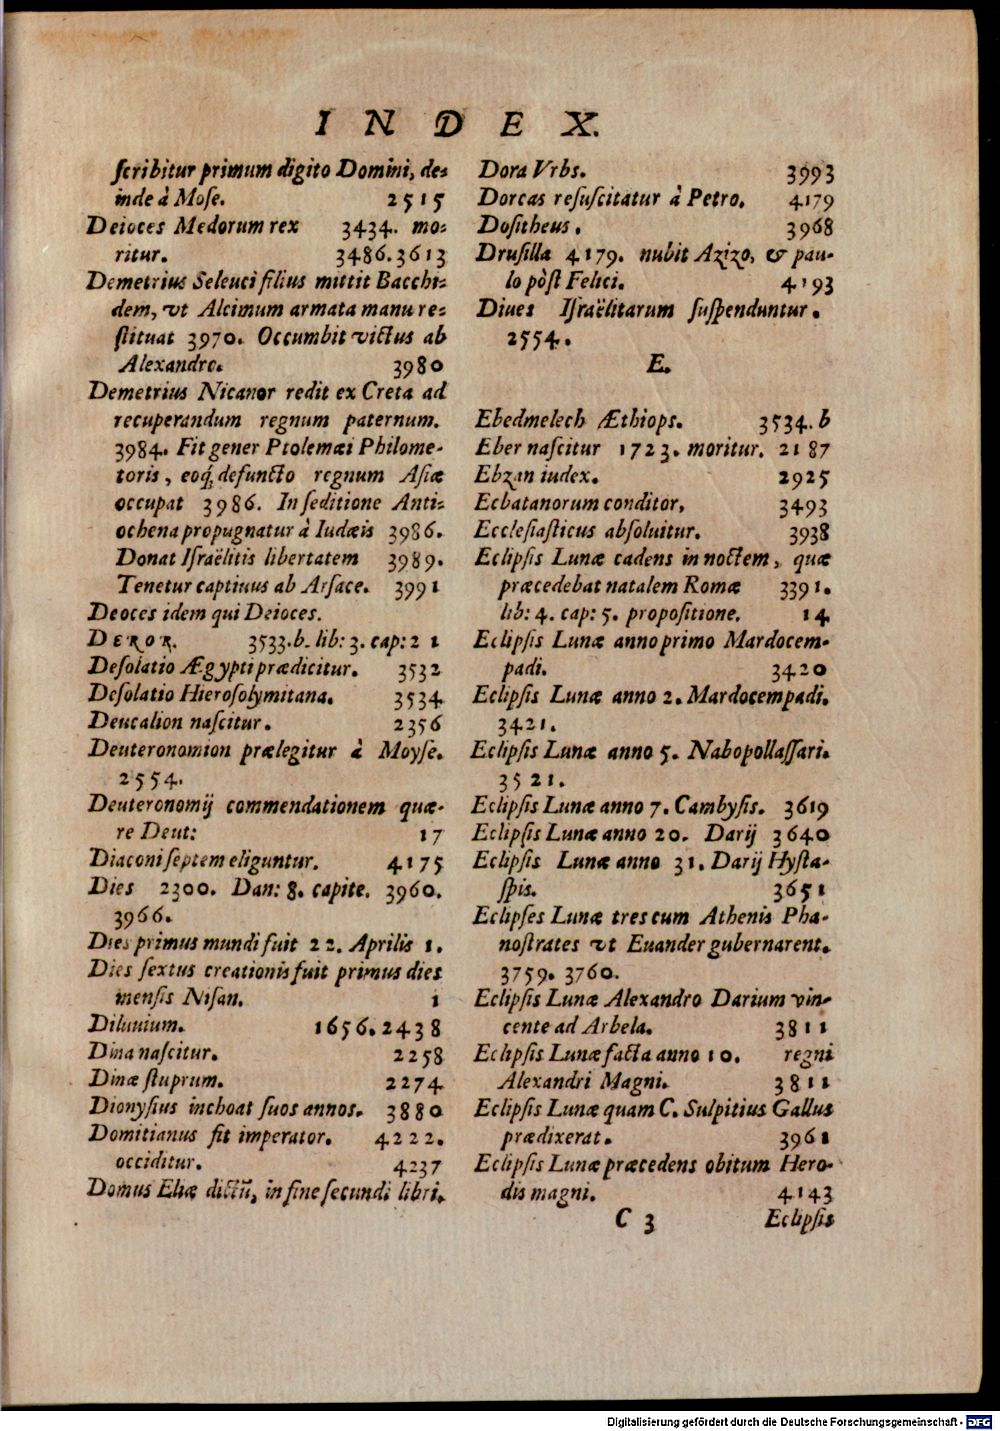 INDEX.
ſcribitur primum digito Domini, de-
inde à Moſe. 2515
Deioces Medorum rex 3434. mo-
ritur. 3486. 3613
Demetrius Seleuci filius mittit Bacchi-
dem, vt Alcimum armata manu re-
ſtituat 3970. Occumbit victus ab
Alexandro. 3980
Demetrius Nicanor redit ex Creta ad
recuperandum regnum paternum.
3984. Fit gener Ptolemæi Philome-
toris, eoq́ defuncto regnum Aſiæ
occupat 3986. In ſeditione Anti-
ochena propugnatur à Iudæis 3986.
Donat Iſraëlitis libertatem 3989.
Tenetur captiuus ab Arſace. 3991
Deoces idem qui Deioces.
DEROR. 3533. b. lib: 3. cap: 21
Deſolatio Ægypti prædicitur. 3532
Deſolatio Hieroſolymitana. 3534
Deucalion naſcitur. 2356
Deuteronomion prælegitur à Moyſe.
2554.
Deuteronomij commendationem quæ-
re Deut: 17
Diaconi ſeptem eliguntur. 4175
Dies 2300. Dan: 8. capite. 3960.
3966.
Dies primus mundi fuit 22. Aprilis 1.
Dies ſextus creationis fuit primus dies
menſis Niſan. 1
Diluuium. 1656. 2438
Dina naſcitur. 2258
Dinæ ſtuprum. 2274
Dionyſius inchoat ſuos annos. 3880
Domitianus fit imperator. 4222.
occiditur. 4237
Domus Eliæ dictū, in fine ſecundi libri.
Dora Vrbs. 3993
Dorcas reſuſcitatur à Petro. 4179
Doſitheus. 3968
Druſilla 4179. nubit Azizo, & pau-
lo pòſt Felici. 4193
Diues Iſraëlitarum ſuſpenduntur.
2554.
E.
Ebedmelech Æthiops. 3534. b
Eber naſcitur 1723. moritur. 2187
Ebzan iudex. 2925
Ecbatanorum conditor, 3493
Eccleſiaſticus abſoluitur. 3938
Eclipſis Lunæ cadens in noctem, quæ
præcedebat natalem Romæ 3391.
lib: 4. cap: 5. propoſitione. 14
Eclipſis Lunæ anno primo Mardocem-
padi. 3420
Eclipſis Lunæ anno 2. Mardocempadi.
3421.
Eclipſis Lunæ anno 5. Nabopollaſſari.
3521.
Eclipſis Lunæ anno 7. Cambyſis. 3619
Eclipſis Lunæ anno 20. Darij 3640
Eclipſis Lunæ anno 31. Darij Hyſta-
ſpis. 3651
Eclipſes Lunæ tres cum Athenis Pha-
noſtrates vt Euander gubernarent.
3759. 3760.
Eclipſis Lunæ Alexandro Darium vin-
cente ad Arbela. 3811
Eclipſis Lunæ facta anno 10. regni
Alexandri Magni. 3811
Eclipſis Lunæ quam C. Sulpitius Gallus
prædixerat. 3961
Eclipſis Lunæ præcedens obitum Hero-
dis magni. 4143
C 3 Eclipſis
Digitalisierung gefördert durch die Deutsche Forschungsgemeinschaft - DFG